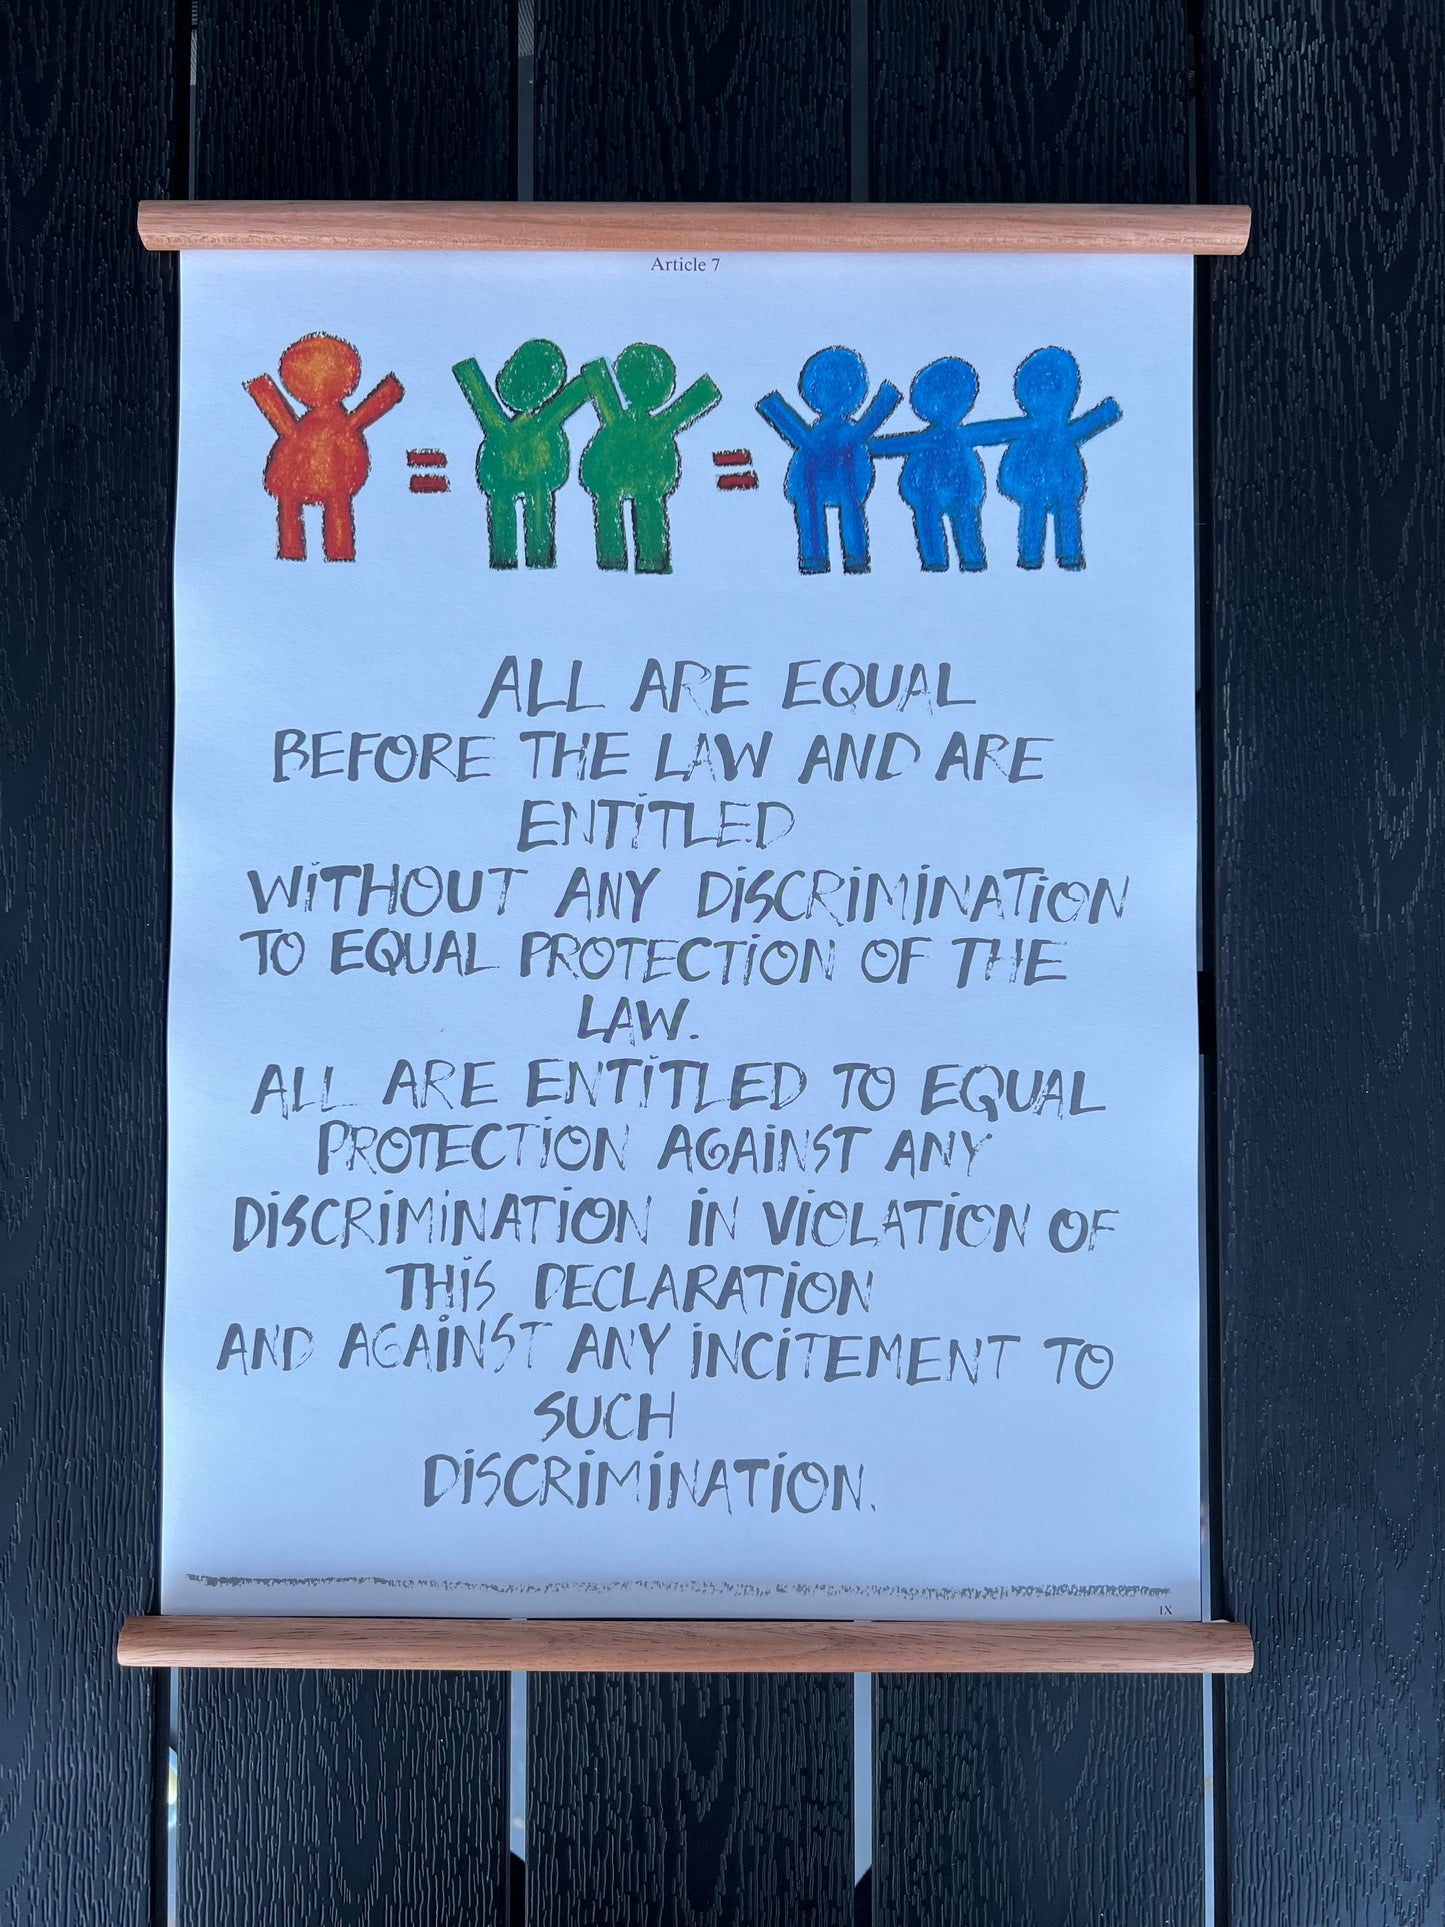 Article 7
= =
ALL ARE EQUAL
BEFORE THE LAW AND ARE
ENTiTLED
WiTHOUT ANY DiSCRiMiNATiON
TO EQUAL PROTECTiON OF THE
LAW.
ALL ARE ENTiTLED TO EQUAL
PROTECTiON AGAiNST ANY
DiSCRiMiNATiON iN ViOLATiON OF
THiS DECLARATiON
AND AGAiNST ANY iNCiTEMENT TO
SUCH
DiSCRiMiNATiON.
IX